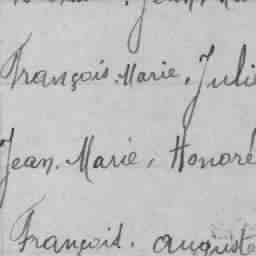 François-Marie, Julie
Jean-Marie, Honoré
François, auguste